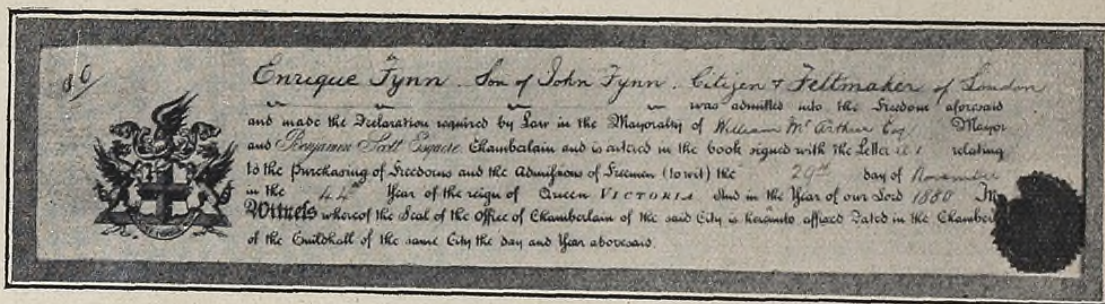 Enrique Fynn Son of John Fynn. Citizen & Feltmaker of London
was admitted into the Freedom aforesaid
and made the Declaration required by Law in the Mayoralty of William Mc Arthur Esq. Mayor
and Benjamin Scott Esquire Chamberlain and is entered in the book signed with the Letter relating
to the Purchasing of Freedoms and the Admissions of Freemen (to wit) the 29th day of November
in the 44th Year of the reign of Queen VICTORIA And in the Year of our Lord 1880 In
Witness whereof the Seal of the Office of Chamberlain of the said City is hereunto affixed Dated in the Chamber
of the Guildhall of the same City the day and Year abovesaid.